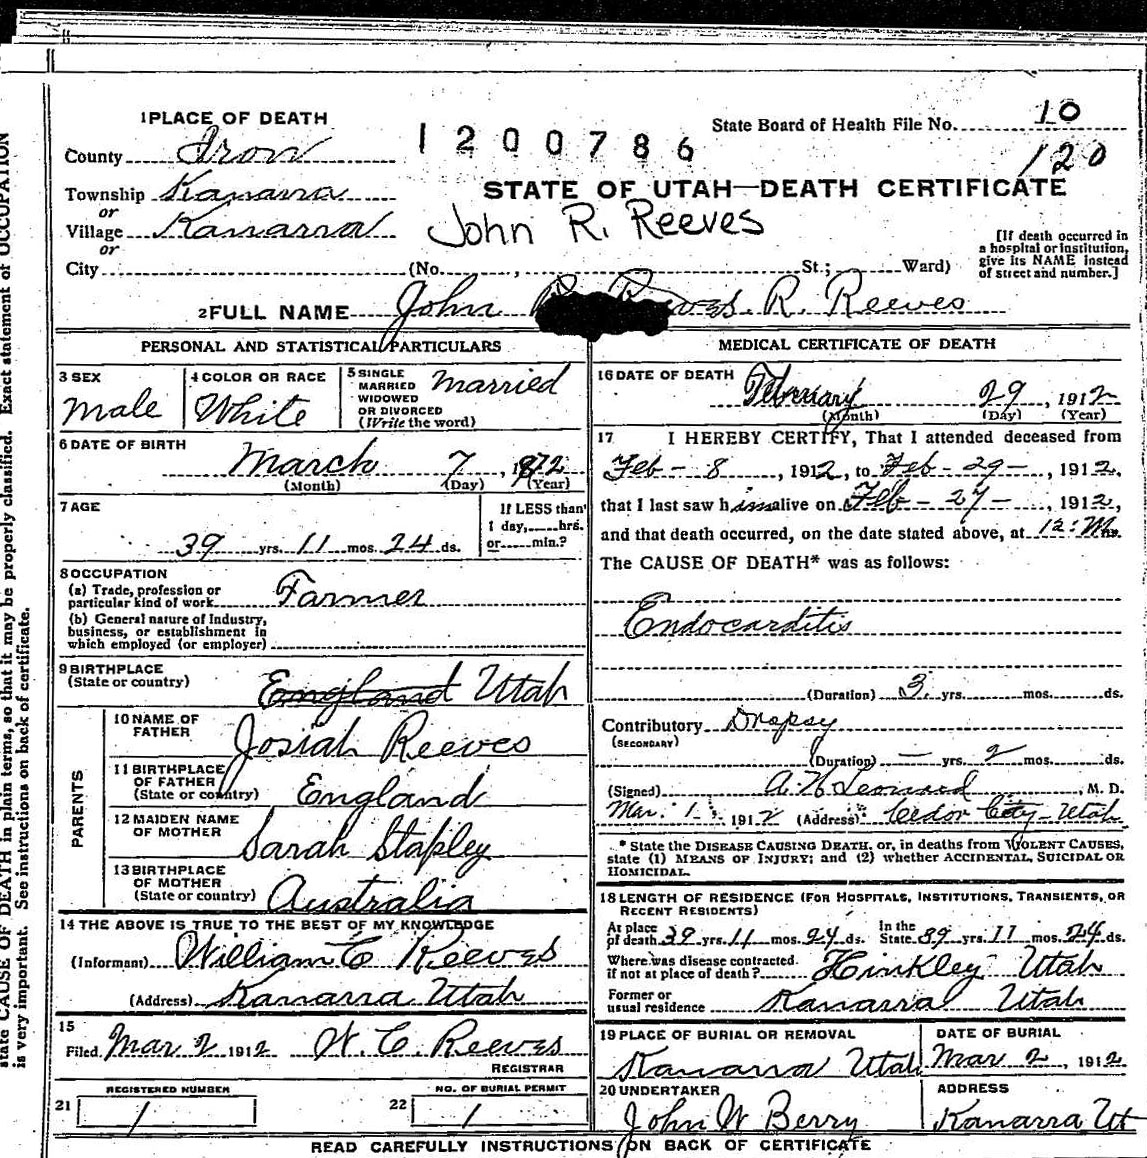 1 PLACE OF DEATH
County Iron
1200786
State Board of Health File No. 10
120
Township Kanarra
or
STATE OF UTAH—DEATH CERTIFICATE
Village Kanarra
or
John R. Reeves
[If death occurred in a hospital or institution, give its NAME instead of street and number.]
City (No. , St.; Ward)
2 FULL NAME John R. Reeves
PERSONAL AND STATISTICAL PARTICULARS
3 SEX
Male
4 COLOR OR RACE
White
5 SINGLE
MARRIED
WIDOWED
OR DIVORCED
(Write the word)
Married
6 DATE OF BIRTH
March 7, 1872
(Month) (Day) (Year)
7 AGE
39 yrs. 11 mos. 24 ds.
If LESS than
1 day, hrs.
or min.?
8 OCCUPATION
(a) Trade, profession or
particular kind of work Farmer
(b) General nature of Industry,
business, or establishment in
which employed (or employer)
9 BIRTHPLACE
(State or country) England Utah
PARENTS
10 NAME OF
FATHER Josiah Reeves
11 BIRTHPLACE
OF FATHER
(State or country) England
12 MAIDEN NAME
OF MOTHER Sarah Stapley
13 BIRTHPLACE
OF MOTHER
(State or country) Australia
14 THE ABOVE IS TRUE TO THE BEST OF MY KNOWLEDGE
(Informant) William C Reeves
(Address) Kanarra Utah
15
Filed Mar 2 1912 W. C. Reeves
REGISTRAR
REGISTERED NUMBER
21 1
NO. OF BURIAL PERMIT
22 1
MEDICAL CERTIFICATE OF DEATH
16 DATE OF DEATH
February 29, 1912
(Month) (Day) (Year)
17 I HEREBY CERTIFY, That I attended deceased from
Feb - 8, 1912, to Feb - 29 -, 1912,
that I last saw him alive on Feb - 27 -, 1912,
and that death occurred, on the date stated above, at 12: M.
The CAUSE OF DEATH* was as follows:
Endocarditis
(Duration) 3 yrs. mos. ds.
Contributory Dropsy
(SECONDARY)
(Duration) — yrs. 2 mos. ds.
(Signed) A. N. Leonard, M. D.
Mar. 1, 1912 (Address) Cedor City - Utah
* State the DISEASE CAUSING DEATH, or, in deaths from VIOLENT CAUSES,
state (1) MEANS OF INJURY; and (2) whether ACCIDENTAL, SUICIDAL OR
HOMICIDAL.
18 LENGTH OF RESIDENCE (FOR HOSPITALS, INSTITUTIONS, TRANSIENTS, OR
RECENT RESIDENTS)
At place
of death 39 yrs. 11 mos. 24 ds. In the
State 39 yrs. 11 mos. 24 ds.
Where was disease contracted
if not at place of death? Hinkley Utah
Former or
usual residence Kanarra Utah
19 PLACE OF BURIAL OR REMOVAL
Kanarra Utah
DATE OF BURIAL
Mar 2, 1912
20 UNDERTAKER
John W Berry
ADDRESS
Kanarra Ut
READ CAREFULLY INSTRUCTIONS ON BACK OF CERTIFICATE
state CAUSE OF DEATH in plain terms, so that it may be properly classified. Exact statement of OCCUPATION
is very important. See instructions on back of certificate.